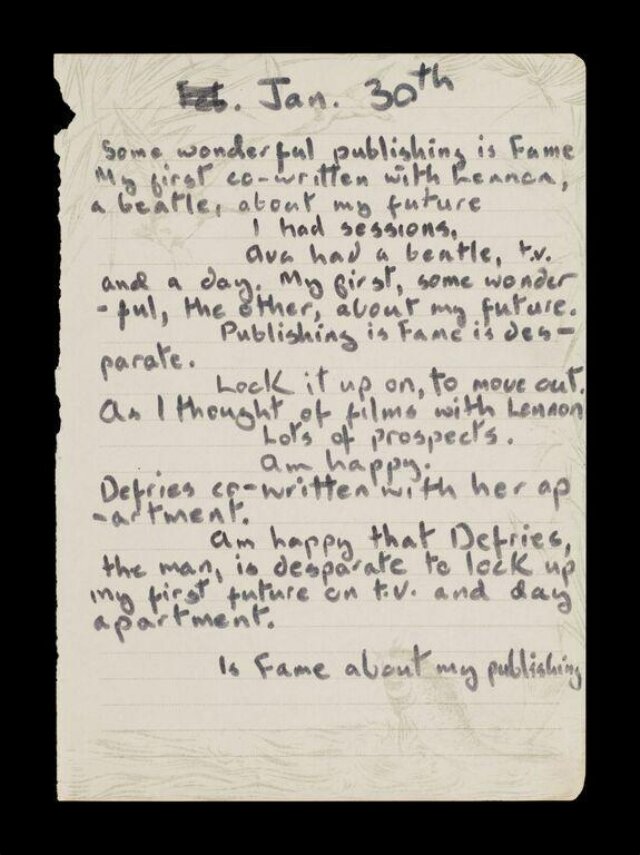 Feb. Jan. 30th
Some wonderful publishing is Fame
My first co-written with Lennon,
a beatle, about my future
I had sessions.
Ava had a beatle, t.v.
and a day. My first, some wonder
-ful, the other, about my future.
Publishing is Fame is des-
parate.
Lock it up on, to move out.
As I thought of films with Lennon
Lots of prospects.
Am happy.
Defries co-written with her ap
-artment.
Am happy that Defries,
the man, is desparate to lock up
my first future on t.v. and day
apartment.
Is Fame about my publishing